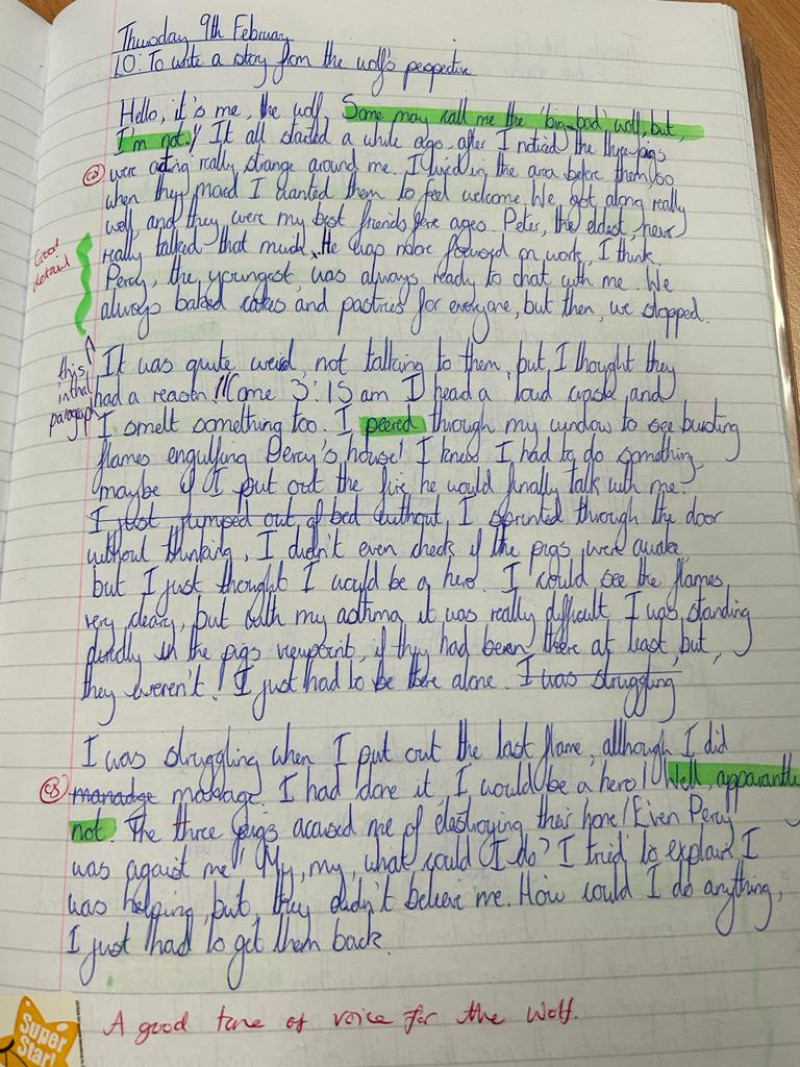 Thursday 9th February
LO: To write a story from the wolf's perspective
Hello, it's me, the wolf. Some may call me the 'big-bad' wolf, but,
I'm not! It all started a while ago, after I noticed the three pigs
were acting really strange around me. I lived in the area before them, so
when they moved I wanted them to feel welcome. We got along really
well, and they were my best friends fore ages. Peter, the eldest, never
Good detail
really talked that much. He was more focused on work, I think.
Percy, the youngest, was always ready to chat with me. We
always baked cakes and pastries for everyone, but then, we stopped.
this in that paragraph
It was quite weird, not talking to them, but, I thought they
had a reason! Come 3:15am I heard a loud and
I smelt something too. I peered through my window to see bursting
flames engulfing Percy's house! I knew I had to do something,
maybe if I put out the fire he would finally talk with me.
I just jumped out of bed without, I sprinted through the door
without thinking, I didn't even check if the pigs were awake,
but I just thought I would be a hero. I could see the flames
very cleary, but with my asthma it was really difficult. I was standing
directly in the pigs viewpoint, if they had been there at least, but,
they weren't! I just had to be there alone. I was struggling
I was struggling when I put out the last flame, although I did
manadge manage. I had done it, I would be a hero! Well, apparantly
not. The three pigs accused me of destroying their home! Even Percy
was against me! My, my, what could I do? I tried to explain I
was helping, but, they didn't believe me. How could I do anything,
I just had to get them back.
Super Star!
A good tone of voice for the Wolf.